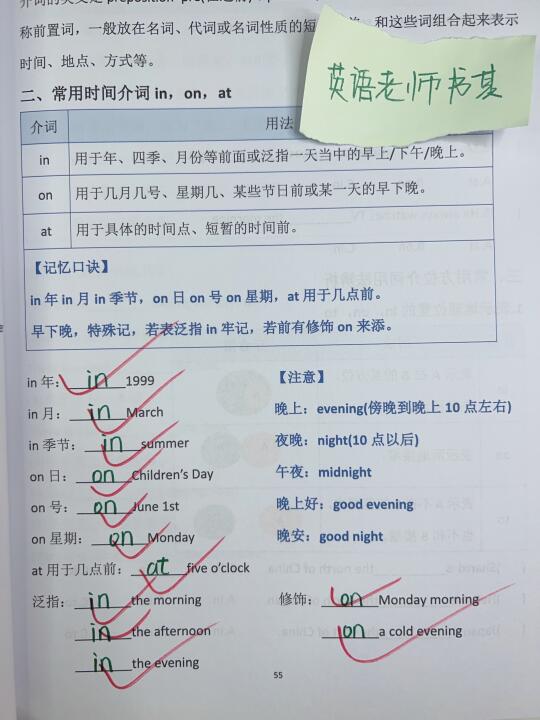 称前置词，一般放在名词、代词或名词性质的短
和这些词组合起来表示
时间、地点、方式等。
英语老师书其
二、常用时间介词 in，on，at
介词 用法
in 用于年、四季、月份等前面或泛指一天当中的早上/下午/晚上。
on 用于几月几号、星期几、某些节日前或某一天的早下晚。
at 用于具体的时间点、短暂的时间前。
【记忆口诀】
in 年 in 月 in 季节，on 日 on 号 on 星期，at 用于几点前。
早下晚，特殊记，若表泛指 in 牢记，若前有修饰 on 来添。
in 年：in 1999
in 月：in March
in 季节：in summer
on 日：on Children's Day
on 号：on June 1st
on 星期：on Monday
at 用于几点前：at five o'clock
泛指：in the morning
in the afternoon
in the evening
【注意】
晚上：evening(傍晚到晚上 10 点左右)
夜晚：night(10 点以后)
午夜：midnight
晚上好：good evening
晚安：good night
修饰：on Monday morning
on a cold evening
55